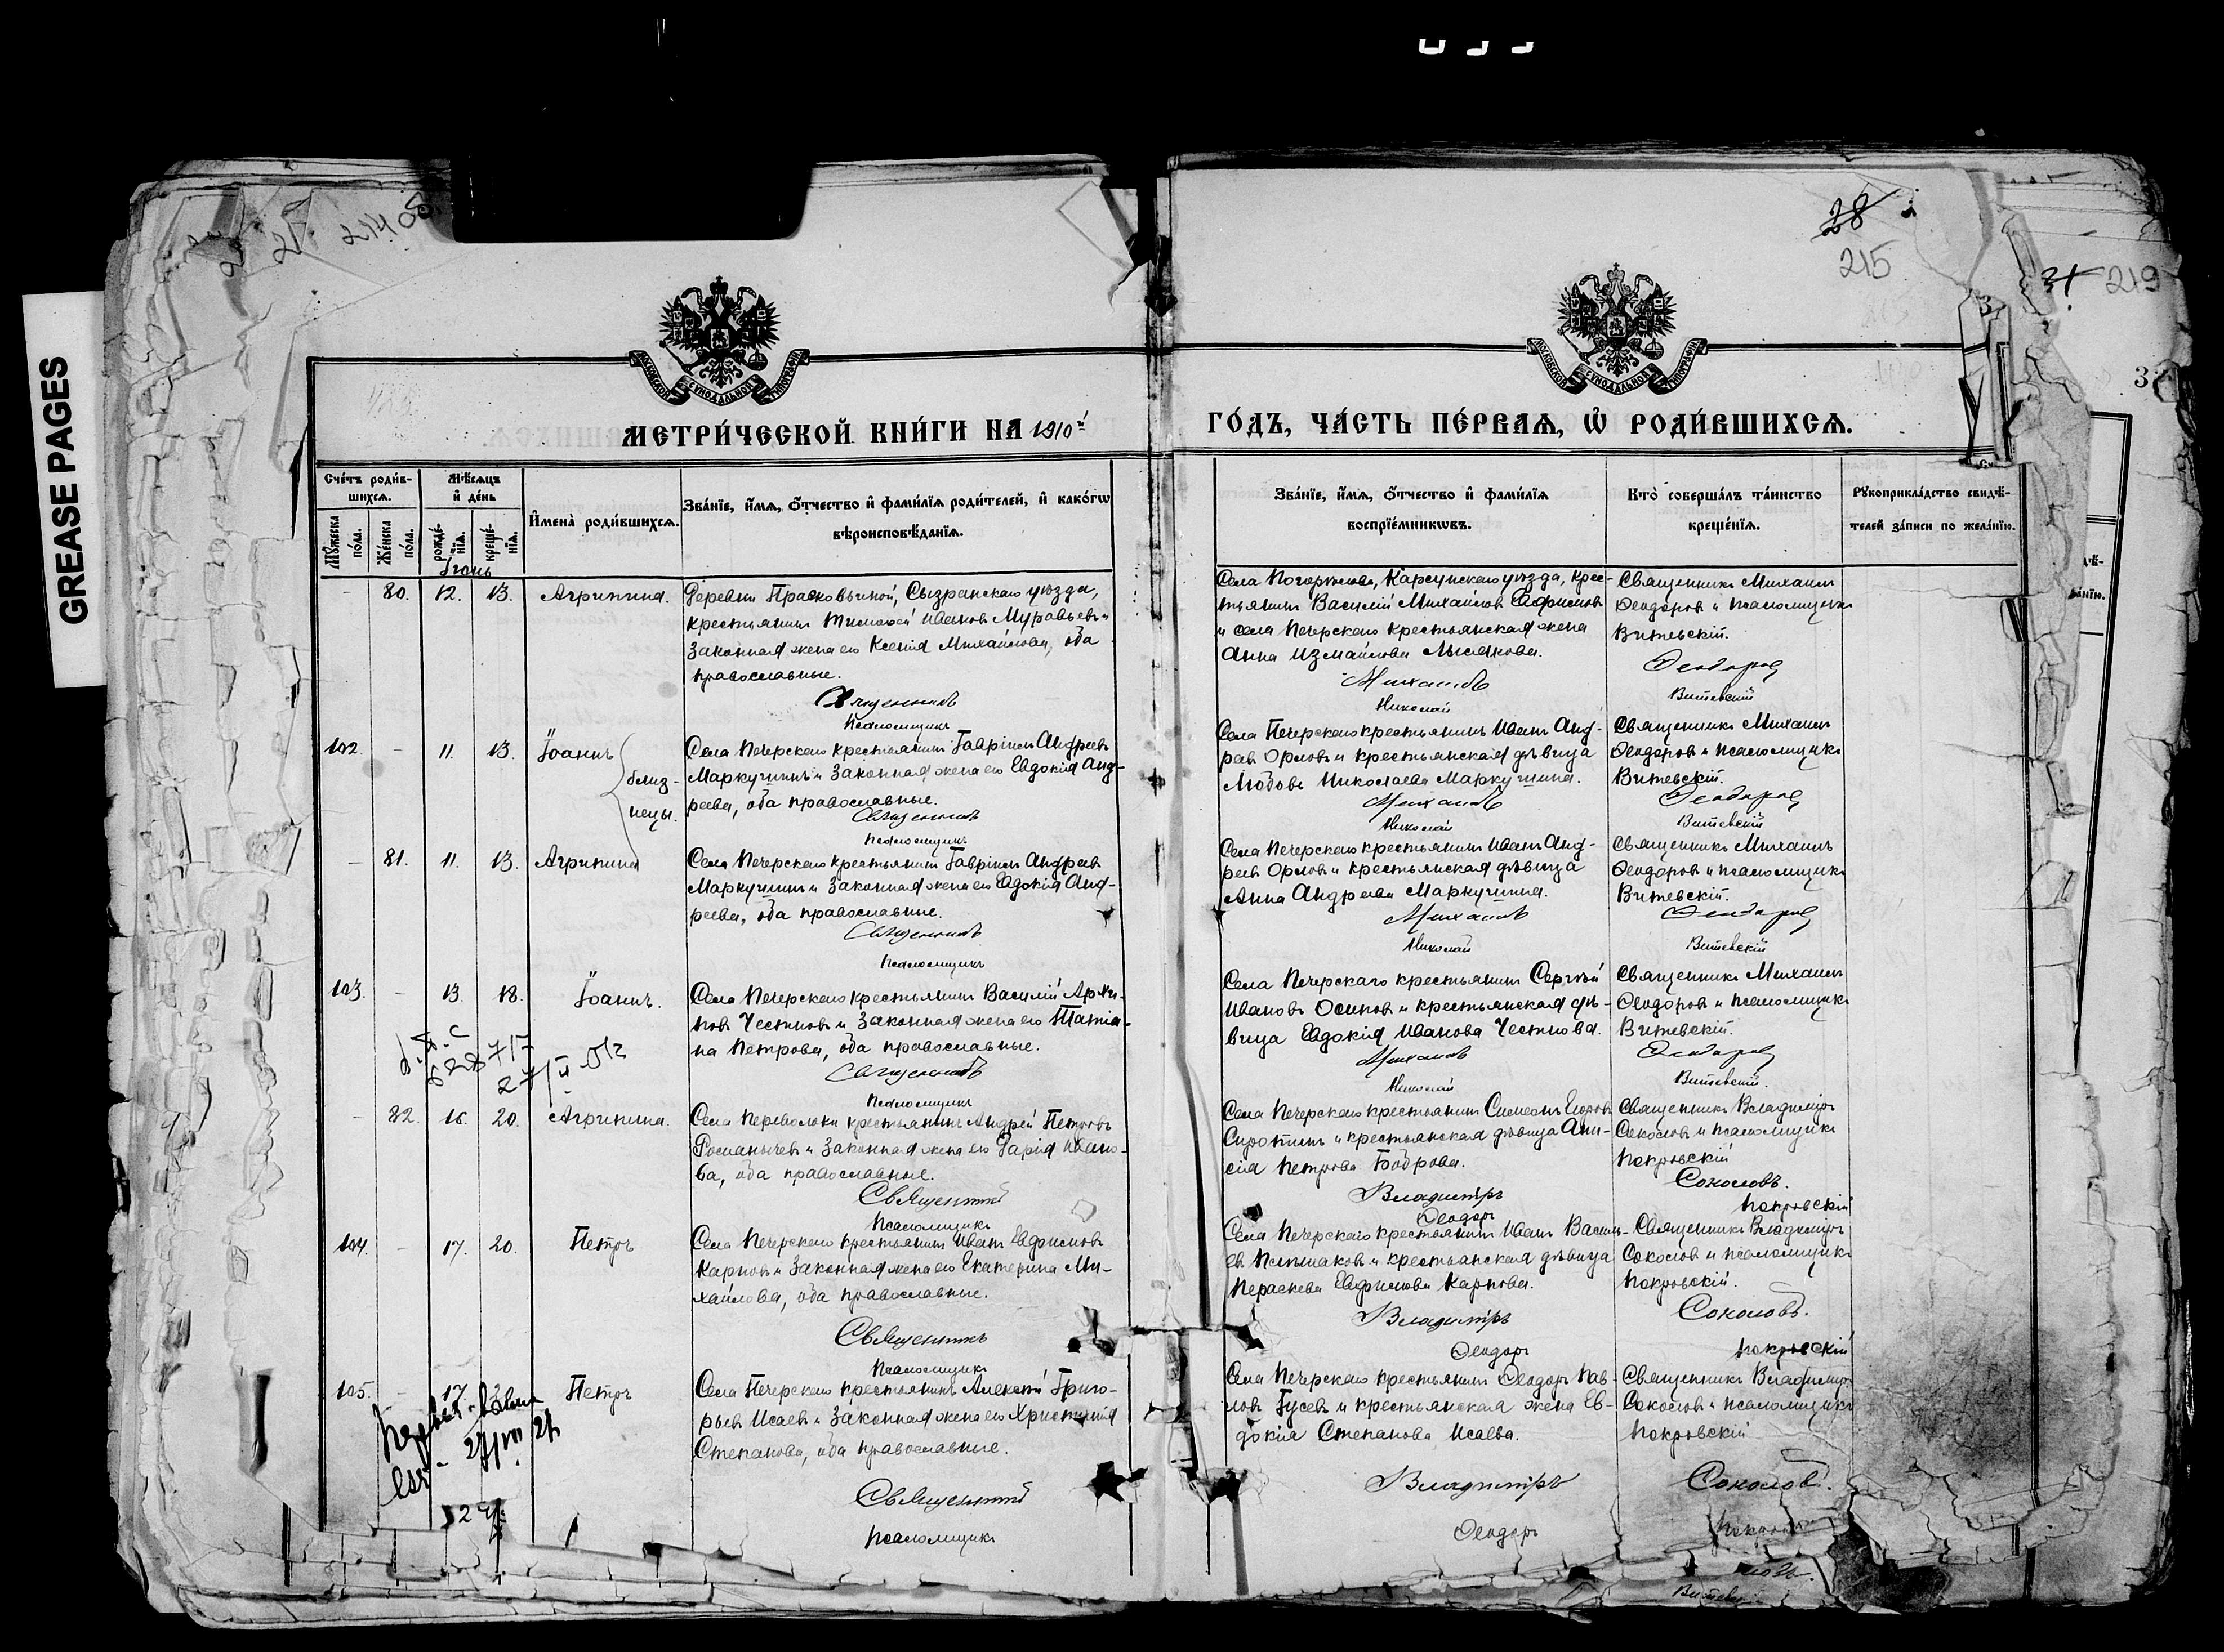 GREASE PAGES
28
215
31 219
МОСКОВСКОЙ СѴНОДАЛЬНОЙ ТИПОГРАФІИ
МОСКОВСКОЙ СѴНОДАЛЬНОЙ ТИПОГРАФІИ
МЕТРИ́ЧЕСКОЙ КНИ́ГИ НА 1910й
ГО́ДЪ, ЧА́СТЬ ПЕ́РВАѦ, Ѡ҆ РОДИ́ВШИХСѦ.
Сче́тъ роди́в-
шихсѧ.
Мѣ́сѧцъ
и҆ де́нь
Мꙋ́жеска по́ла.
Же́нска по́ла.
рожде́-
нїѧ.
креще́-
нїѧ.
И҆мена̀ роди́вшихсѧ.
Зва́нїе, и҆́мѧ, ѻ҆́тчество и҆ фами́лїѧ роди́телей, и҆ како́гѡ
вѣроисповѣ́данїѧ.
Зва́нїе, и҆́мѧ, ѻ҆́тчество и҆ фами́лїѧ
воспрїе́мникѡвъ.
Кто̀ соверша́лъ та́инство
креще́нїѧ.
Рꙋкоприкла́дство свидѣ́-
телей за́писи по жела́нїю.
Іюнь
– 80. 12. 13. Агрипина.
Деревни Прасковьиной, Сызранскаго уѣзда,
крестьянинъ Тимоѳей Ивановъ Муравьевъ и
законная жена его Ксенія Михайлова, оба
православные.
Священникъ
Псаломщикъ
крестьянинъ Василій Михайловъ
и села Печерскаго крестьянская жена
Анна Измайлова Лысякова.
Михаилъ
Николай
Священникъ Михаилъ
Ѳеодоровъ и псаломщикъ
Витевскій.
Ѳеодоровъ
Витевскій
102. – 11. 13. Іоаннъ
близ-
нецы.
Села Печерскаго крестьянинъ Гавріилъ Андреевъ
Маркушинъ и законная жена его Евдокія Анд-
реева, оба православные.
Священникъ
Псаломщикъ
Села Печерскаго крестьянинъ Иванъ Анд-
реевъ Орловъ и крестьянская дѣвица
Любовь Николаева Маркушина.
Михаилъ
Николай
Священникъ Михаилъ
Ѳеодоровъ и псаломщикъ
Витевскій.
Ѳеодоровъ
Витевскій
– 81. 11. 13. Агрипина
Села Печерскаго крестьянинъ Гавріилъ Андреевъ
Маркушинъ и законная жена его Евдокія Анд-
реева, оба православные.
Священникъ
Псаломщикъ
Села Печерскаго крестьянинъ Иванъ Анд-
реевъ Орловъ и крестьянская дѣвица
Анна Андреева Маркушина.
Михаилъ
Николай
Священникъ Михаилъ
Ѳеодоровъ и псаломщикъ
Витевскій.
Ѳеодоровъ
Витевскій
103. – 13. 18. Іоаннъ.
Села Печерскаго крестьянинъ Василій
Честновъ и законная жена его Татіа-
на Петрова, оба православные.
Священникъ
Псаломщикъ
Села Печерскаго крестьянинъ Сергѣй
Ивановъ Осиповъ и крестьянская дѣ-
вица Евдокія Иванова Честнова.
Михаилъ
Николай
Священникъ Михаилъ
Ѳеодоровъ и псаломщикъ
Витевскій.
Ѳеодоровъ
Витевскій.
– 82. 16. 20. Агрипина.
Села Переволоки крестьянинъ Андрей Петровъ
и законная жена его Дарія Ивано-
ва, оба православные.
Священникъ
Псаломщикъ
Села Печерскаго крестьянинъ Симеонъ Егоровъ
Сиротинъ и крестьянская дѣвица Ани-
сія Петрова Боброва.
Владиміръ
Ѳеодоръ
Священникъ Владиміръ
Соколовъ и псаломщикъ
Покровскій
Соколовъ.
Покровскій
104. – 17. 20. Петръ
Села Печерскаго крестьянинъ Иванъ Евфимовъ
Карповъ и законная жена его Екатерина Ми-
хайлова, оба православные.
Священникъ
Псаломщикъ
Села Печерскаго крестьянинъ Иванъ Василь-
евъ и крестьянская дѣвица
Параскева Евфимова Карпова.
Владиміръ
Ѳеодоръ
Священникъ Владиміръ
Соколовъ и псаломщикъ
Покровскій.
Соколовъ.
Покровскій
105. – 17. Петръ
Села Печерскаго крестьянинъ Алексѣй Григо-
рьевъ Исаевъ и законная жена его Христина
Степанова, оба православные.
Священникъ
Псаломщикъ
Села Печерскаго крестьянинъ Ѳеодоръ Пав-
ловъ Гусевъ и крестьянская жена Ев-
докія Степанова Исаева.
Владиміръ
Ѳеодоръ
Священникъ Владиміръ
Соколовъ и псаломщикъ
Покровскій
Соколовъ.